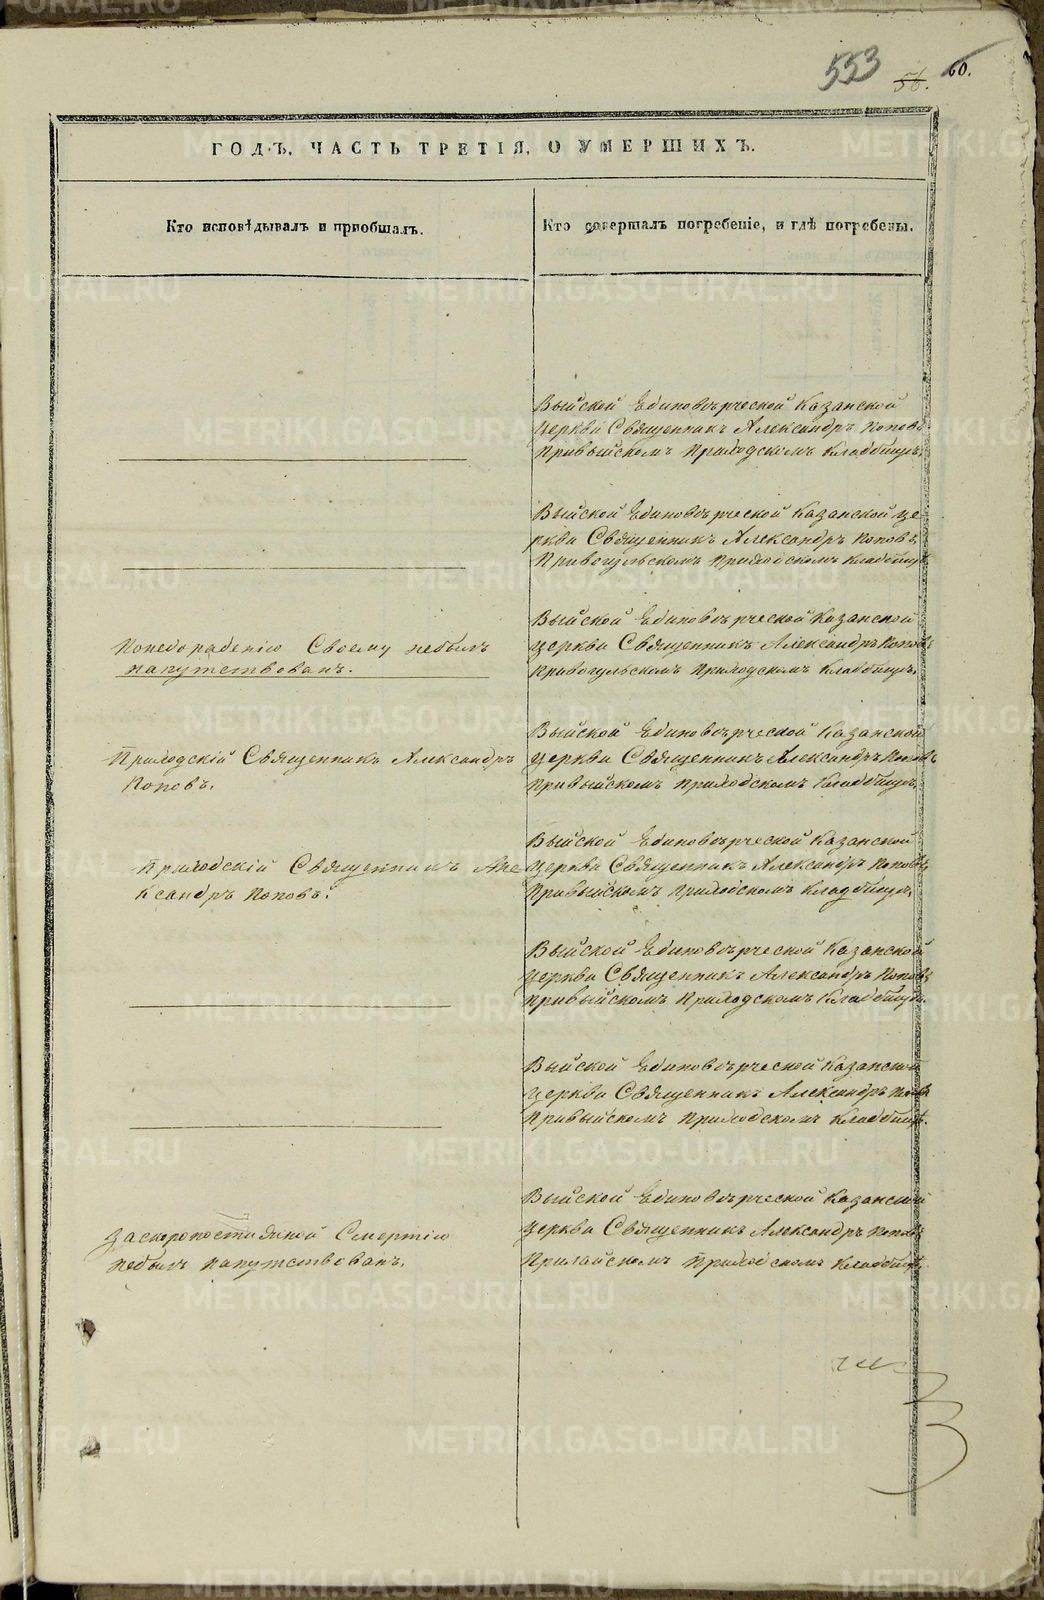 553
56.
60.
ГОДЪ, ЧАСТЬ ТРЕТІЯ, О УМЕРШИХЪ.
Кто исповѣдывалъ и пріобщалъ.
Кто совершалъ погребеніе, и гдѣ погребены.
Выйской Единовѣрческой Казанской
Церкви Священникъ Александръ Поповъ
Привыйскомъ Приходскомъ Кладбищѣ.
Выйской Единовѣрческой Казанской Це
ркви Священникъ Александръ Поповъ
Привогульскомъ Приходскомъ Кладбищѣ
Понебораденію Своему небылъ
напутствованъ.
Выйской Единовѣрческой Казанской
Церкви Священникъ Александръ Поповъ
Привогульскомъ Приходскомъ Кладбищѣ.
Приходскій Священникъ Александръ
Поповъ.
Выйской Единовѣрческой Казанской
Церкви Священникъ Александръ Поповъ
Привыйскомъ Приходскомъ Кладбищѣ.
Приходскій Священникъ Але
ксандръ Поповъ.
Выйской Единовѣрческой Казанской
Церкви Священникъ Александръ Поповъ
Привыйскомъ Приходскомъ Кладбищѣ.
Выйской Единовѣрческой Казанской
Церкви Священникъ Александръ Поповъ
Привыйскомъ Приходскомъ Кладбищѣ.
Выйской Единовѣрческой Казанской
Церкви Священникъ Александръ Поповъ
Привыйскомъ Приходскомъ Кладбищѣ.
Заскоропостижной Смертію
небылъ напутствованъ.
Выйской Единовѣрческой Казанской
Церкви Священникъ Александръ Поповъ
Прилайскомъ Приходскомъ Кладбищѣ.
METRIKI.GASO-URAL.RU